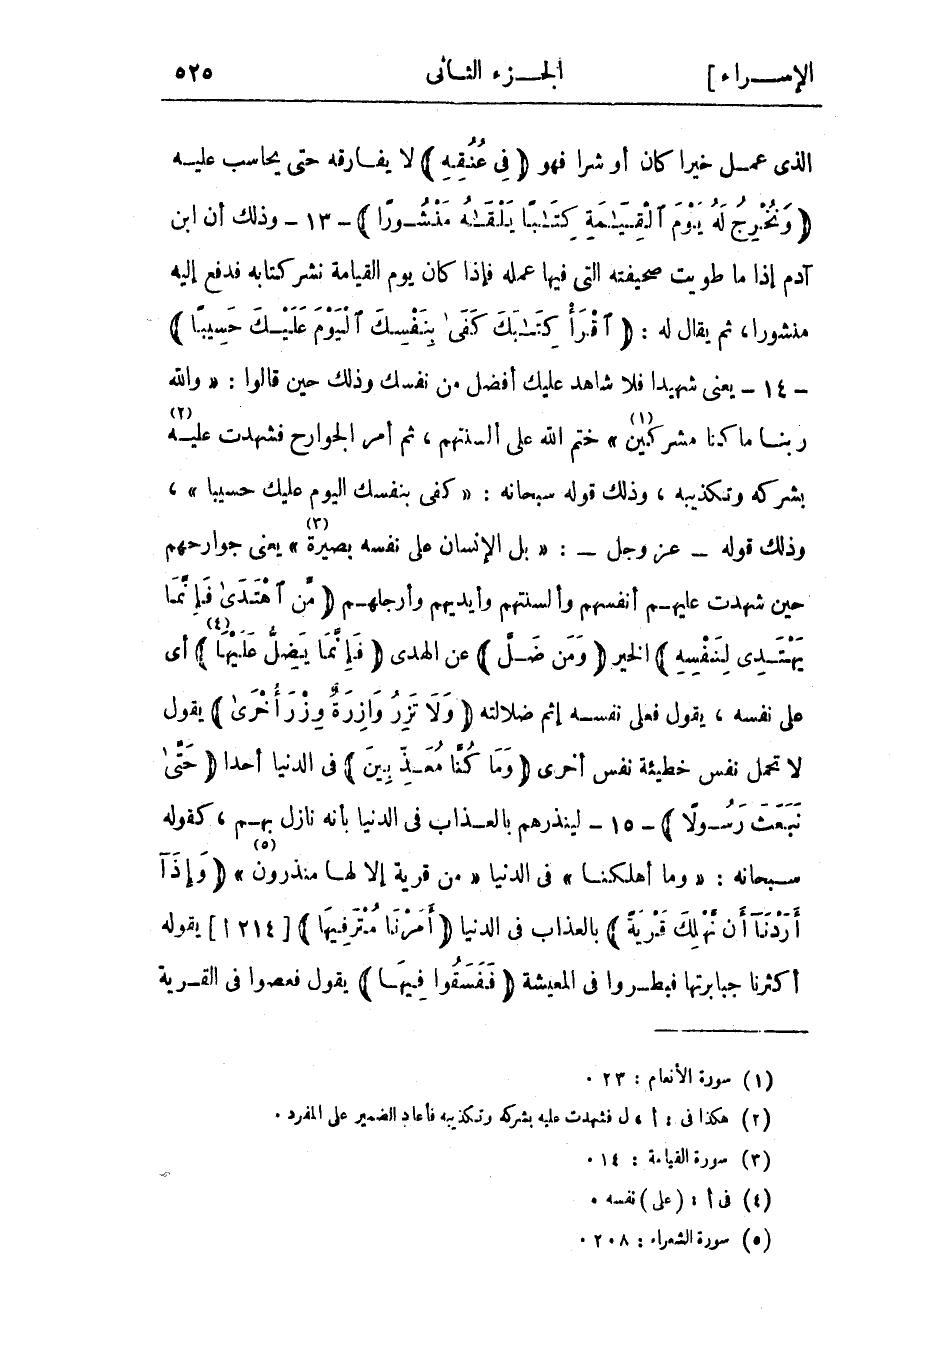 الإســـراء] الجـــزء الثـانى ٥٢٥
الذى عمـل خيرا كان أو شرا فهو ﴿فِى عُنُقِهِ﴾ لا يفـارقه حتى يحاسب عليـه
﴿وَنُخْرِجُ لَهُ يَوْمَ ٱلْقِيَـٰمَةِ كِتَـٰبًا يَلْقَـٰهُ مَنْشُـورًا﴾ ـ ١٣ ـ وذلك أن ابن
آدم إذا ما طويت صحيفته التى فيها عمله فإذا كان يوم القيامة نشر كتابه فدفع إليه
منشورا، ثم يقال له : ﴿ٱقْرَأْ كِتَـٰبَكَ كَفَىٰ بِنَفْسِكَ ٱلْيَوْمَ عَلَيْـكَ حَسِيبًا﴾
ـ ١٤ ـ يعنى شهيدا فلا شاهد عليك أفضل من نفسك وذلك حين قالوا : « والله
ربنـا ما كنا مشركين(١) » ختم الله على ألسنتهم ، ثم أمر الجوارح فشهدت عليـه(٢)
بشركه وتكذيبه ، وذلك قوله سبحانه : « كفى بنفسك اليوم عليك حسيبا » ،
وذلك قوله ـ عز وجل ـ : « بل الإنسان على نفسه بصيرة(٣) » يعنى جوارحهم
حين شهدت عليهـم أنفسهم وألسنتهم وأيديهم وأرجلهـم ﴿مَّنِ ٱهْتَدَىٰ فَإِنَّمَا
يَهْتَـدِى لِنَفْسِهِ﴾ الخير ﴿وَمَن ضَـلَّ﴾ عن الهدى ﴿فَإِنَّمَا يَضِلُّ عَلَيْهَا(٤)﴾ أى
على نفسه ، يقول فعلى نفسـه إثم ضلالته ﴿وَلَا تَزِرُ وَازِرَةٌ وِزْرَ أُخْرَىٰ﴾ يقول
لا تحمل نفس خطيئة نفس أخرى ﴿وَمَا كُنَّا مُعَـذِّبِينَ﴾ فى الدنيا أحدا ﴿حَتَّىٰ
نَبْعَثَ رَسُـولًا﴾ ـ ١٥ ـ لينذرهم بالعـذاب فى الدنيا بأنه نازل بهـم ، كقوله
سـبحانه : « وما أهلكنـا » فى الدنيا « من قرية إلا لهـا منذرون(٥) » ﴿وَإِذَآ
أَرَدْنَآ أَن نُّهْلِكَ قَرْيَةً﴾ بالعذاب فى الدنيا ﴿أَمَرْنَا مُتْرَفِيهَا﴾ [٢١٤ ا] يقوله
أكثرنا جبابرتها فبطـروا فى المعيشة ﴿فَفَسَقُوا فِيهَـا﴾ يقول فعصوا فى القـرية
(١) سورة الأنعام : ٢٣ .
(٢) هكذا فى : أ ، ل فشهدت عليه بشركه وتكذيبه فأعاد الضمير على المفرد .
(٣) سورة القيامة : ١٤ .
(٤) فى أ : (على) نفسه .
(٥) سورة الشعراء : ٢٠٨ .